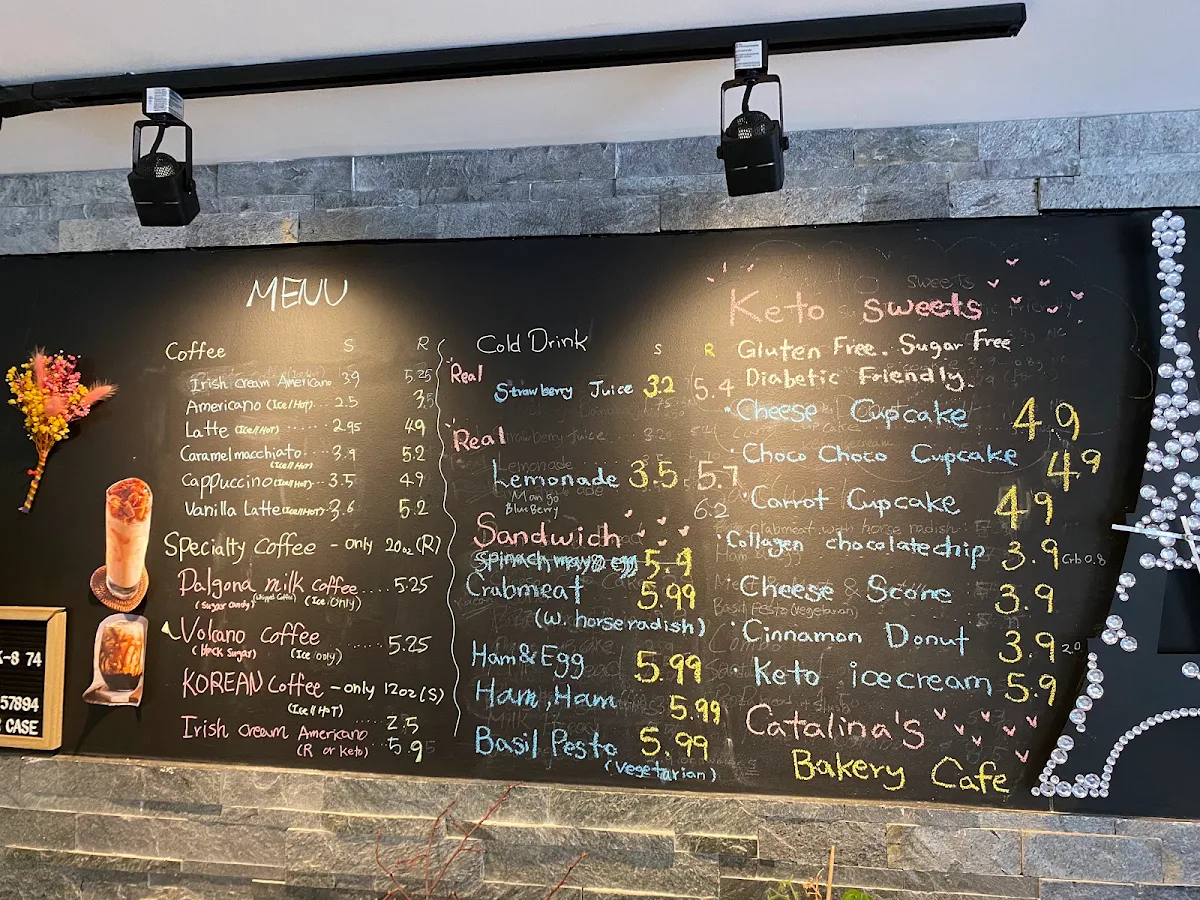 MENU
Coffee S R
Irish cream Americano 3.9 5.25
Americano (Ice/Hot) .... 2.5 3.5
Latte (Ice/Hot) ...... 2.95 4.9
Caramel macchiato .... 3.9 5.2
(Ice/Hot)
Cappuccino (Ice/Hot) .. 3.5 4.9
Vanilla Latte (Ice/Hot) .. 3.6 5.2
Specialty Coffee - only 20oz (R)
Dalgona milk coffee .... 5.25
(Sugar candy) (Ice Only)
Volcano Coffee .... 5.25
(black Sugar) (Ice only)
KOREAN Coffee - only 12oz (S)
(Ice/HoT)
Irish cream Americano .... 2.5
(R or Keto) ... 5.95
K-8 74
57894
CASE
Cold Drink S R
Real
Strawberry Juice 3.2 5.4
Real
Lemonade
Lemonade 3.5 5.7
Mango
BlueBerry 6.2
Sandwich
Spinach mayo egg 5.4
Crabmeat 5.99
(w. horseradish)
Ham & Egg 5.99
Ham, Ham 5.99
Basil Pesto 5.99
(Vegetarian)
sweets
Keto sweets
Gluten Free. Sugar Free
Diabetic Friendly.
Cheese Cupcake 4.9
Choco Choco Cupcake 4.9
Carrot Cupcake 4.9
Collagen chocolatechip 3.9 Crb 0.8
Cheese Scone 3.9
Cinnamon Donut 3.9 2.0
Keto icecream 5.9
Catalina's
Bakery Cafe